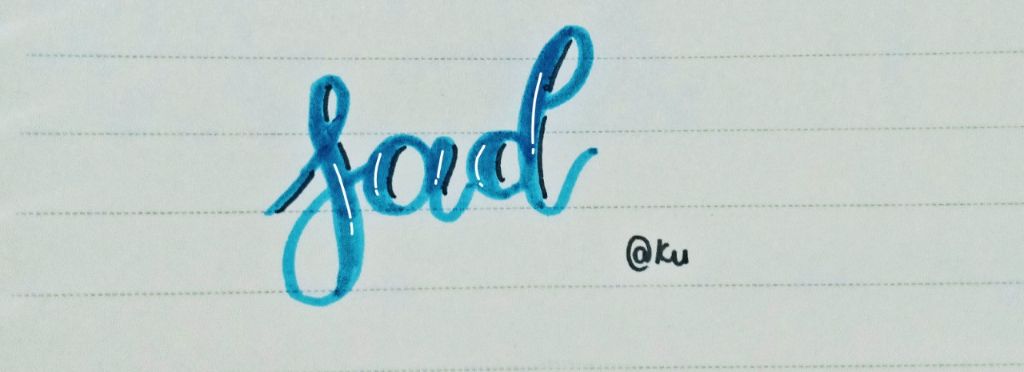 sad
@Ku